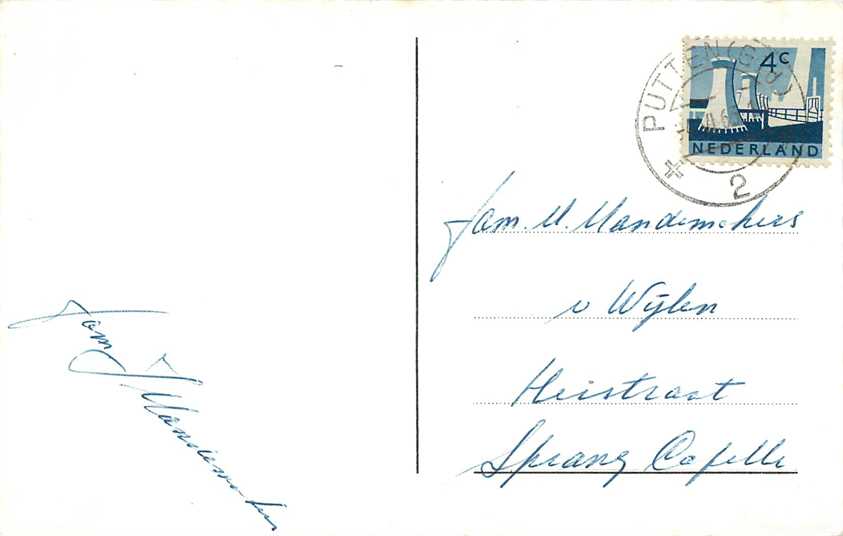 PUTTEN (GLD)
2
4c
NEDERLAND
Fam. M. Mandemakers
v Wijlen
Heistraat
Sprang Capelle
Fam J Mandemakers